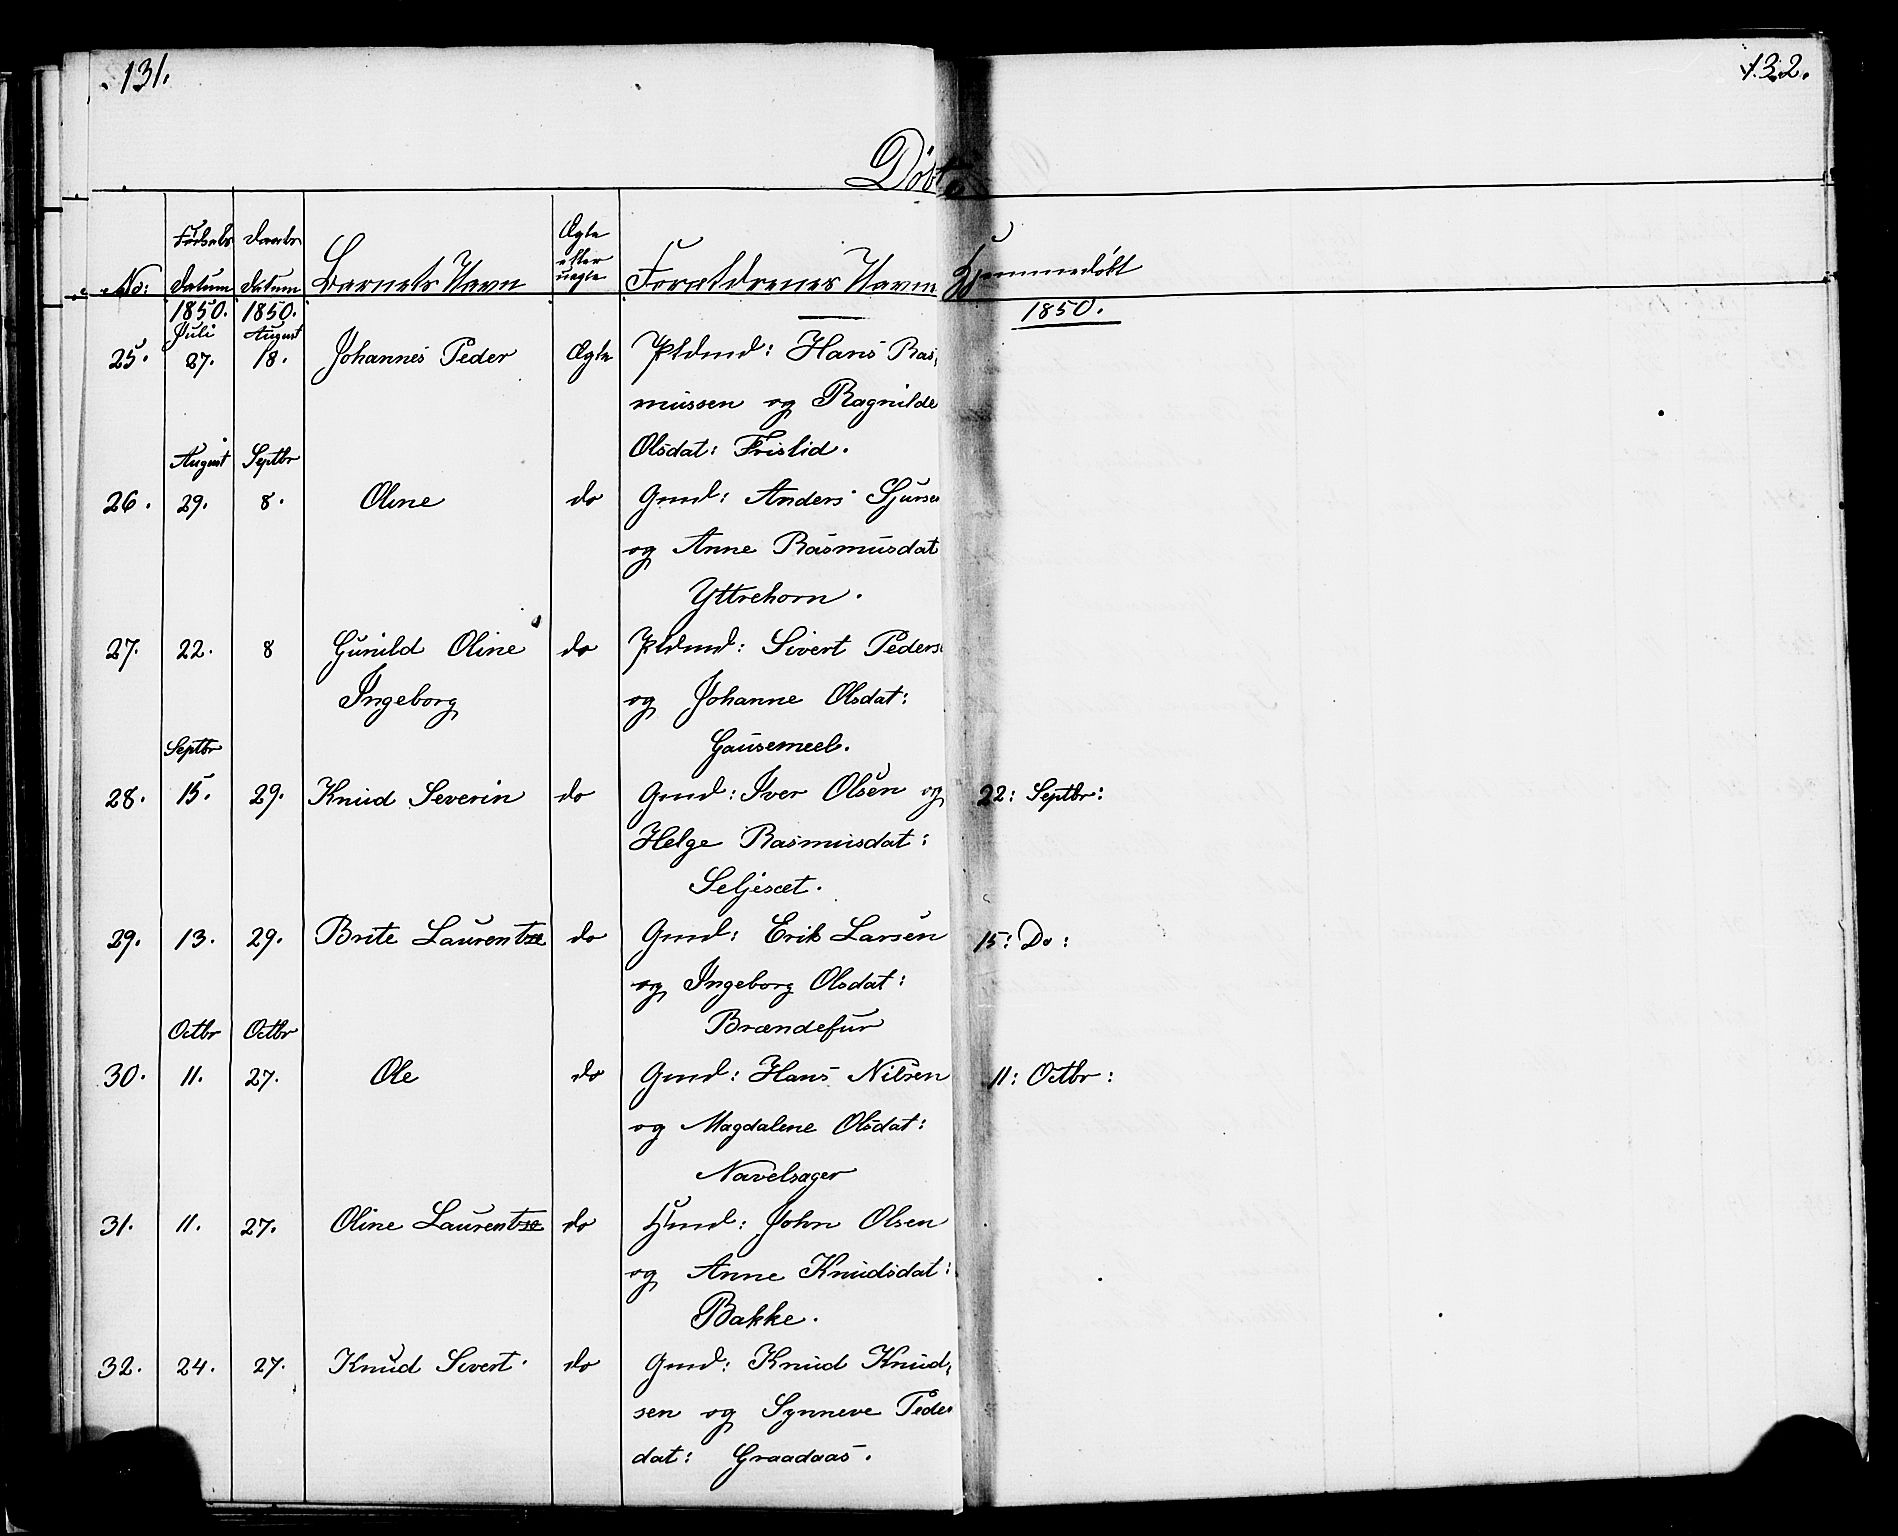 131.
132.
Døbte
No: Fødsels Datum Daabs Datum Barnets Navn Ægte eller uægte Forældrenes Navne Hjemmedøbt
1850. 1850. 1850.
Juli August
25. 27. 18. Johannes Peder Ægte Pldmd: Hans Ras-
mussen og Ragnilde
Olsdat: Frislid.
August Septbr
26. 29. 8. Oline do Gmd: Anders Sjurse
og Anne Rasmusdat
Yttrehorn.
27. 22. 8 Gunild Oline do Pldmd: Sivert Peders
Ingeborg og Johanne Olsdat:
Gausemeel.
Septbr
28. 15. 29. Knud Severin do Gmd: Iver Olsen og 22: Septbr:
Helge Rasmusdat:
Seljesæt.
29. 13. 29. Brite Laurentze do Gmd: Erik Larsen 15: Do:
og Ingeborg Olsdat:
Brændefur
Octbr Octbr
30. 11. 27. Ole do Gmd: Hans Nilsen 11: Octbr:
og Magdalene Olsdat:
Navelsager
31. 11. 27. Oline Laurentze do Hmd: John Olsen
og Anne Knudsdat:
Bakke.
32. 24. 27. Knud Sivert do Gmd: Knud Knud-
sen og Synneve Peder
dat: Graadaas.